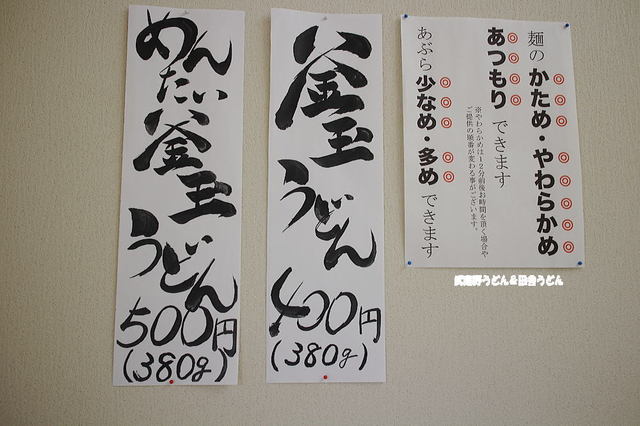 麺のかため・やわらかめ
あつもりできます
※やわらかめは12分前後お時間を頂く場合や
ご提供の順番が変わる事がございます。
あぶら少なめ・多めできます
釜玉うどん
400円
(380g)
めんたい釜玉うどん
500円
(380g)
武蔵野うどん&田舎うどん